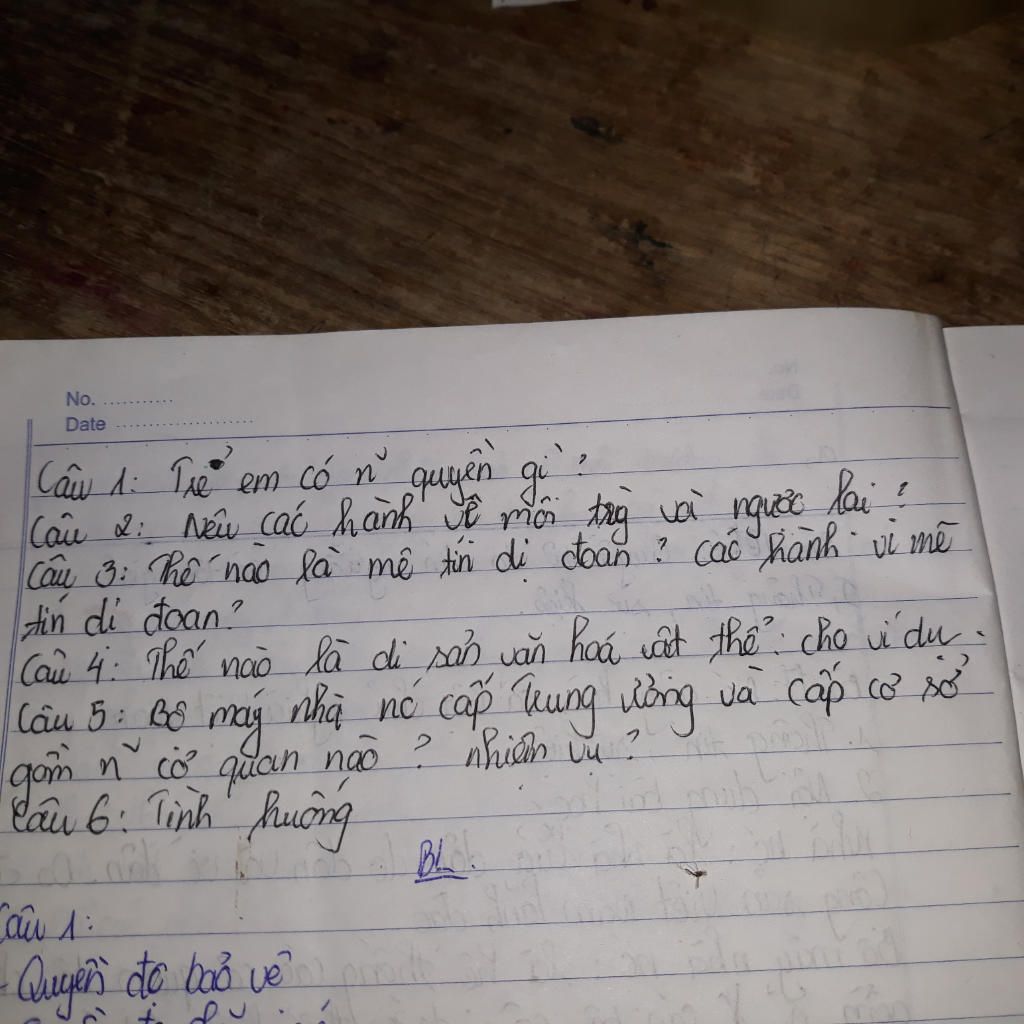 No. ...........
Date ......................
Câu 1: Trẻ em có n~ quyền gì?
Câu 2: Nêu các hành vê môi trg và ngược lai?
Câu 3: Thế nào là mê tín dị đoan? các hành vi mê
tín dị đoan?
Câu 4: Thế nào là di sản văn hoá vật thể: cho ví dụ.
Câu 5: Bô máy nhà nc cấp Trung ương và cấp cơ sở
gồm n~ cơ quan nào? nhiệm vụ?
Câu 6: Tình huống
BL.
Câu 1:
- Quyền đc bảo vệ